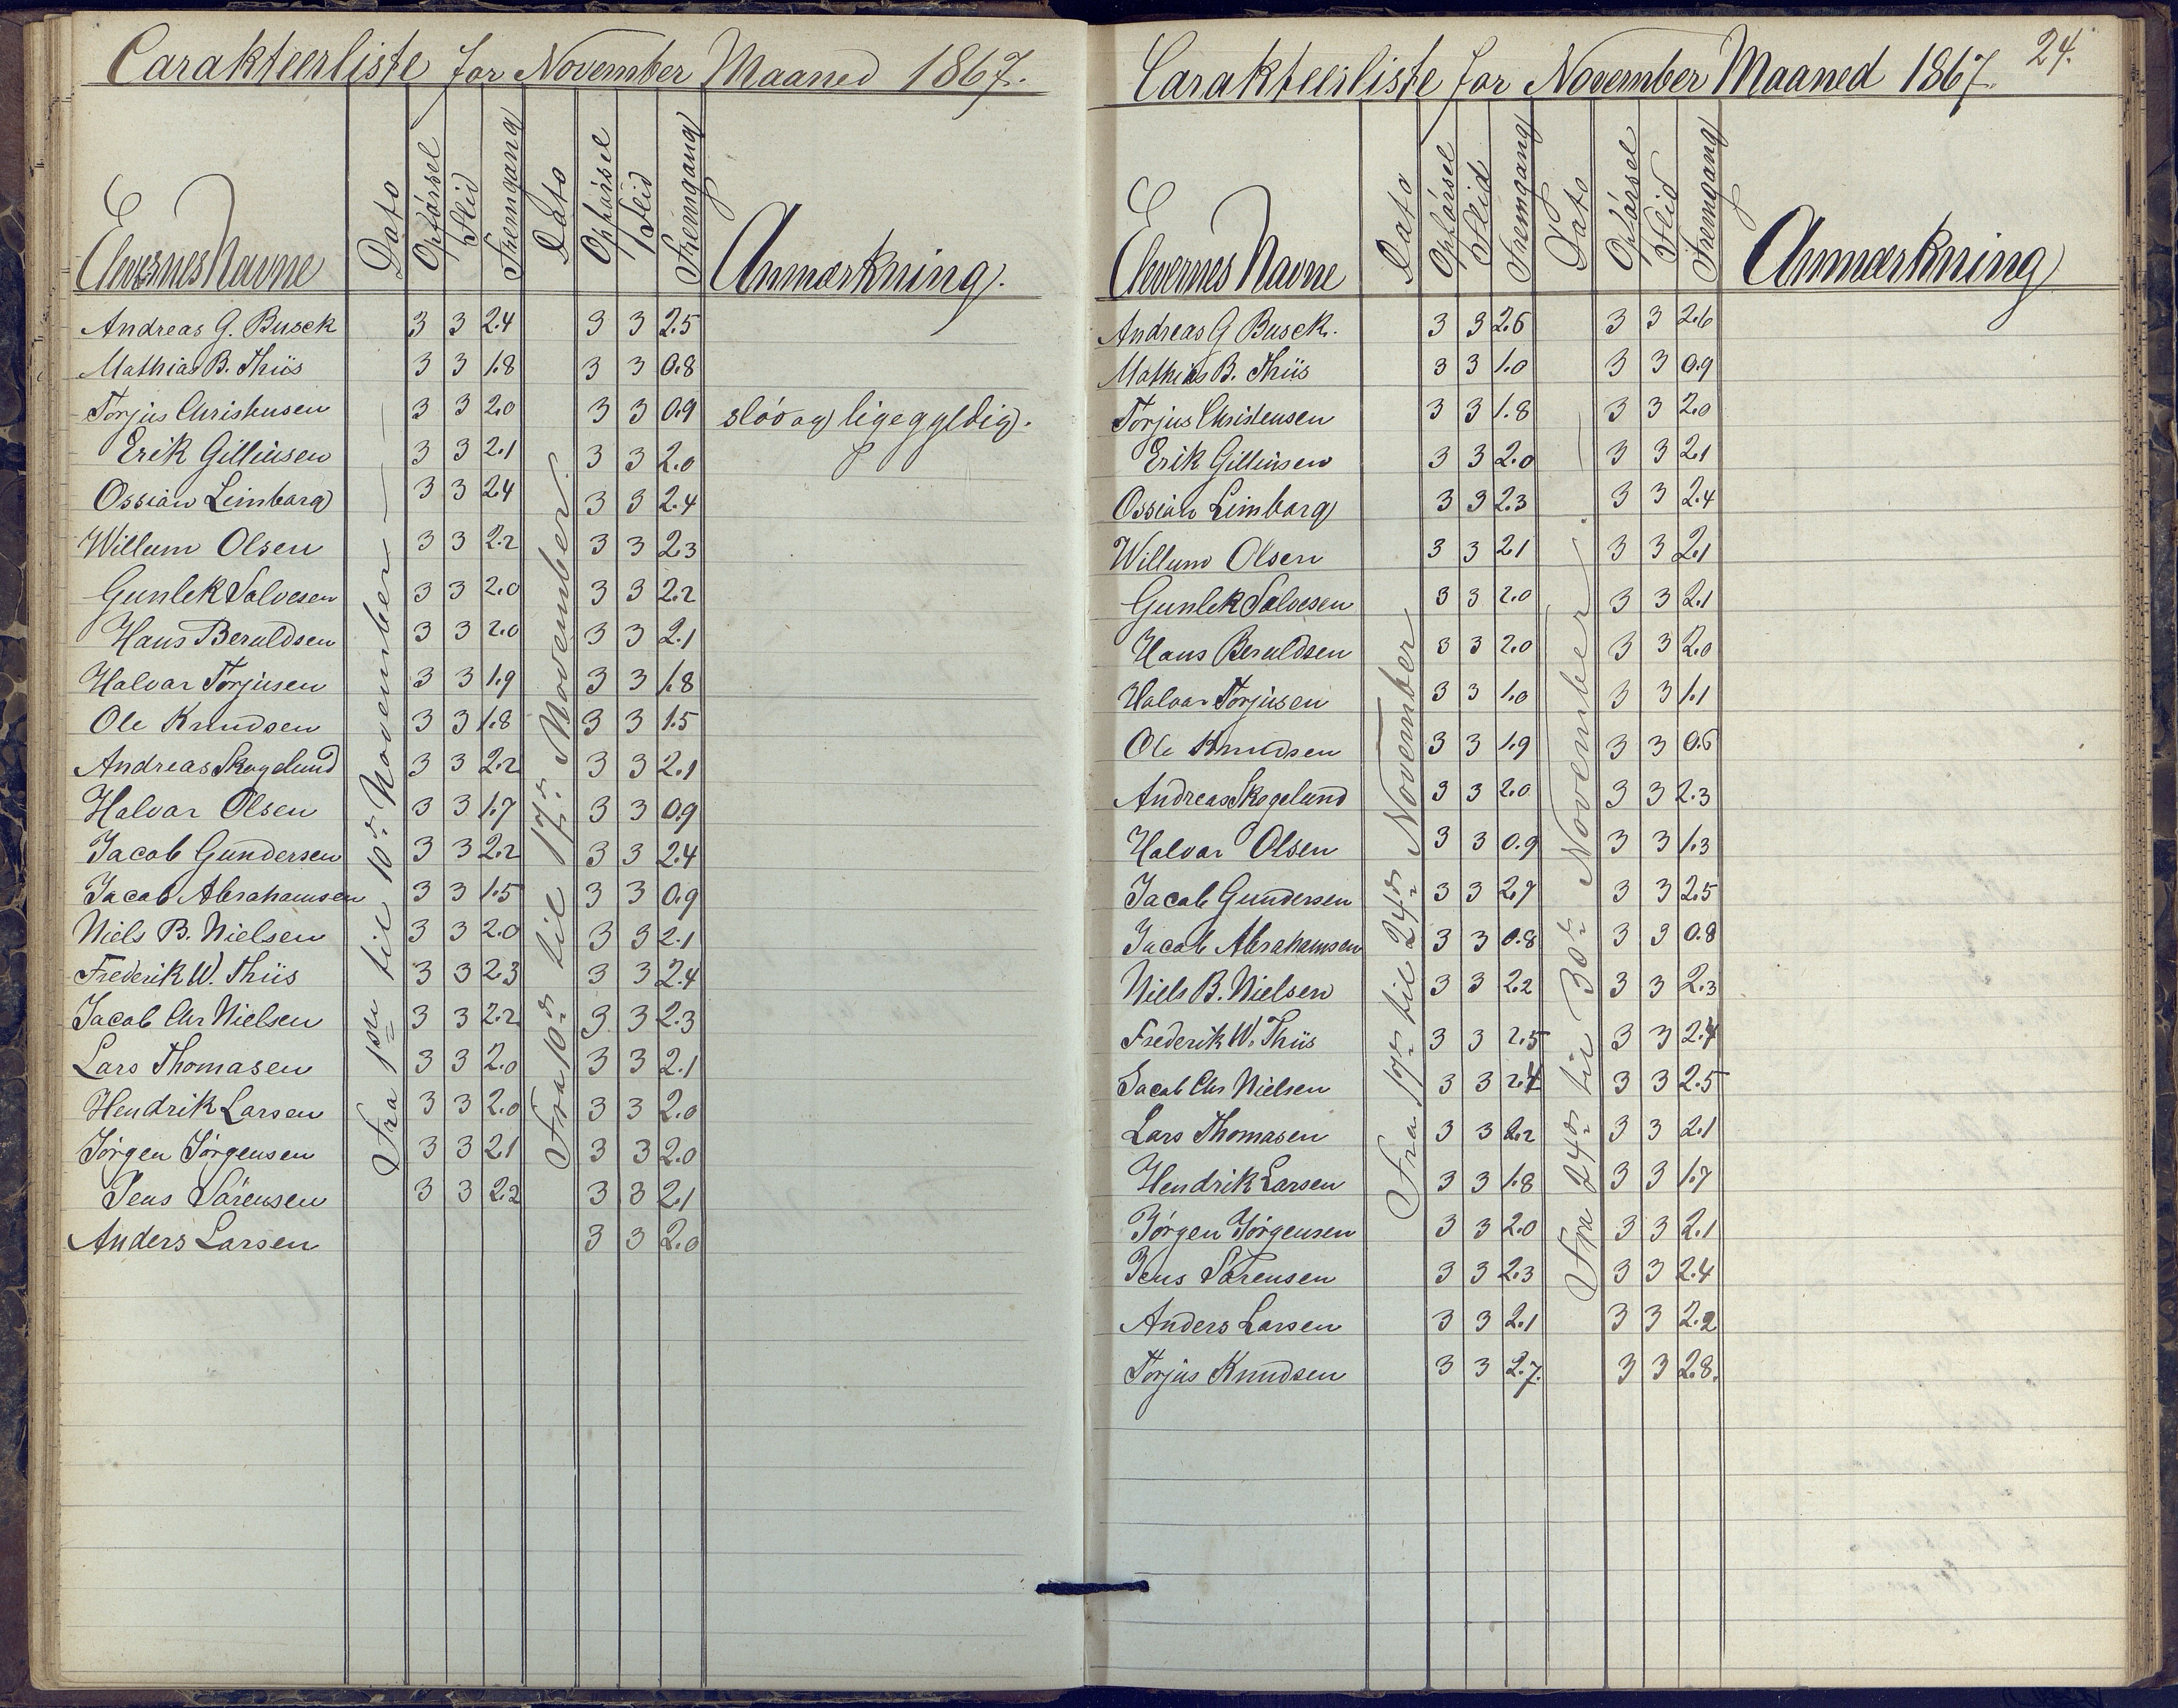 Carakteerliste for November Maaned 1867.
Elevernes Navne Dato Opførsel Flid Fremgang Dato Opførsel Flid Fremgang Anmærkning.
Fra 1ste til 10de November
Fra 10de til 17de November.
Andreas G. Busck 3 3 2.4 3 3 2.5
Mathias B. Thiis 3 3 1.8 3 3 0.8
Torjus Christensen 3 3 2.0 3 3 0.9 sløv og ligegyldig.
Erik Gillinsen 3 3 2.1 3 3 2.0
Ossian Limborg 3 3 2.4 3 3 2.4
Willum Olsen 3 3 2.2 3 3 2.3
Gunlek Salvesen 3 3 2.0 3 3 2.2
Hans Beruldsen 3 3 2.0 3 3 2.1
Halvor Torjusen 3 3 1.9 3 3 1.8
Ole Knudsen 3 3 1.8 3 3 1.5
Andreas Skogelund 3 3 2.2 3 3 2.1
Halvar Olsen 3 3 1.7 3 3 0.9
Jacob Gundersen 3 3 2.2 3 3 2.4
Jacob Abrahamsen 3 3 1.5 3 3 0.9
Niels B. Nielsen 3 3 2.0 3 3 2.1
Frederik W. Thiis 3 3 2.3 3 3 2.4
Jacob Chr Nielsen 3 3 2.2 3 3 2.3
Lars Thomasen 3 3 2.0 3 3 2.1
Hendrik Larsen 3 3 2.0 3 3 2.0
Jørgen Jørgensen 3 3 2.1 3 3 2.0
Jens Sørensen 3 3 2.2 3 3 2.1
Anders Larsen 3 3 2.0
24.
Carakteerliste for November Maaned 1867.
Elevernes Navne Dato Opførsel Flid Fremgang Dato Opførsel Flid Fremgang Anmærkning
Fra 19de til 24de November
Fra 24de til 30te November
Andreas G Busck. 3 3 2.6 3 3 2.6
Mathias B. Thiis 3 3 1.0 3 3 0.9
Torjus Christensen 3 3 1.8 3 3 2.0
Erik Gillinsen 3 3 2.0 3 3 2.1
Ossian Limborg 3 3 2.3 3 3 2.4
Willum Olsen 3 3 2.1 3 3 2.1
Gunlek Salvesen 3 3 2.0 3 3 2.1
Hans Beruldsen 3 3 2.0 3 3 2.0
Halvar Torjusen 3 3 1.0 3 3 1.1
Ole Knudsen 3 3 1.9 3 3 0.6
Andreas Skogelund 3 3 2.0 3 3 2.3
Halvar Olsen 3 3 0.9 3 3 1.3
Jacob Gundersen 3 3 2.7 3 3 2.5
Jacob Abrahamsen 3 3 0.8 3 3 0.8
Niels B. Nielsen 3 3 2.2 3 3 2.3
Frederik W. Thiis 3 3 2.5 3 3 2.4
Jacob Chr Nielsen 3 3 2.4 3 3 2.5
Lars Thomasen 3 3 2.2 3 3 2.1
Hendrik Larsen 3 3 1.8 3 3 1.7
Jørgen Jørgensen 3 3 2.0 3 3 2.1
Jens Sørensen 3 3 2.3 3 3 2.4
Anders Larsen 3 3 2.1 3 3 2.2
Torjus Knudsen 3 3 2.7. 3 3 2.8.